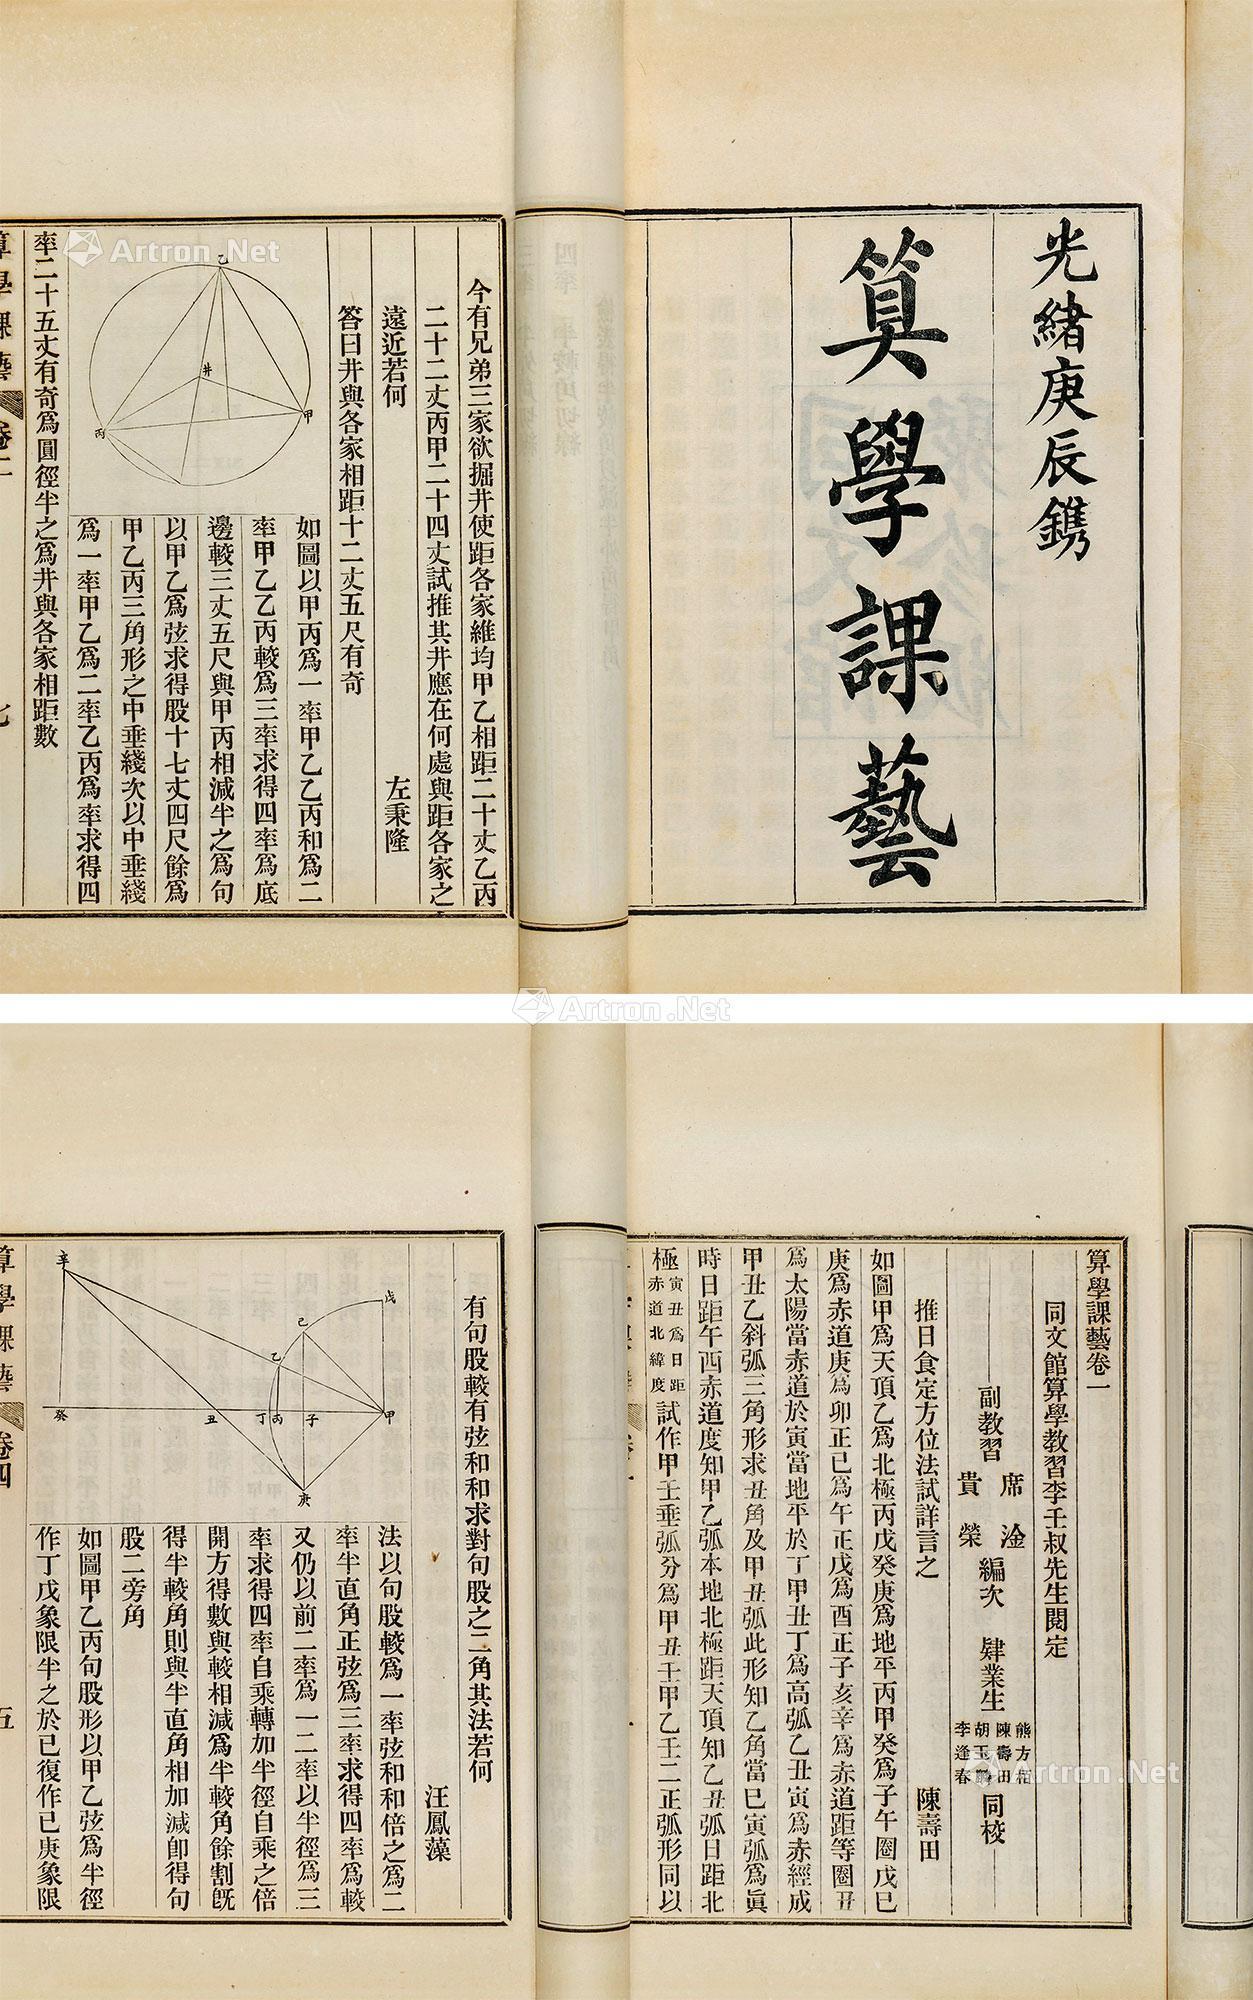 光緒庚辰鐫
算學課藝
今有兄弟三家欲掘井使距各家維均甲乙相距二十丈乙丙
二十二丈丙甲二十四丈試推其井應在何處與距各家之
遠近若何
左秉隆
答曰井與各家相距十二丈五尺有奇
如圖以甲丙爲一率甲乙乙丙和爲二
率甲乙乙丙較爲三率求得四率爲底
邊較三丈五尺與甲丙相減半之爲句
以甲乙爲弦求得股十七丈四尺餘爲
甲乙丙三角形之中垂綫次以中垂綫
爲一率甲乙爲二率乙丙爲率求得四
率二十五丈有奇爲圓徑半之爲井與各家相距數
乙
井
甲
丙
算學課藝 卷二 七
Artron.Net
Artron.Net
算學課藝卷一
同文館算學教習李壬叔先生閱定
副教習 席淦 貴榮 編次 肄業生 熊方柏 陳壽田 胡玉麟 李逢春 同校
推日食定方位法試詳言之 陳壽田
如圖甲爲天頂乙爲北極丙戊癸庚爲地平丙甲癸爲子午圈戊巳
庚爲赤道庚爲卯正巳爲午正戊爲酉正子亥辛爲赤道距等圈丑
爲太陽當赤道於寅當地平於丁甲丑丁爲高弧乙丑寅爲赤經成
甲丑乙斜弧三角形求丑角及甲丑弧此形知乙角當巳寅弧爲眞
時日距午西赤道度知甲乙弧本地北極距天頂知乙丑弧日距北
極寅丑爲日距赤道北緯度試作甲壬垂弧分爲甲丑壬甲乙壬二正弧形同以
Artron.Net
有句股較有弦和和求對句股之二角其法若何
汪鳳藻
法以句股較爲一率弦和和倍之爲二
率半直角正弦爲三率求得四率爲較
又仍以前二率爲一二率以半徑爲三
率求得四率自乘轉加半徑自乘之倍
開方得數與較相減爲半較角餘割旣
得半較角則與半直角相加減卽得句
股二旁角
如圖甲乙丙句股形以甲乙弦爲半徑
作丁戊象限半之於己復作己庚象限
辛
戊
己
乙
癸
丑
丁
丙
子
甲
庚
算學課藝 卷四 五